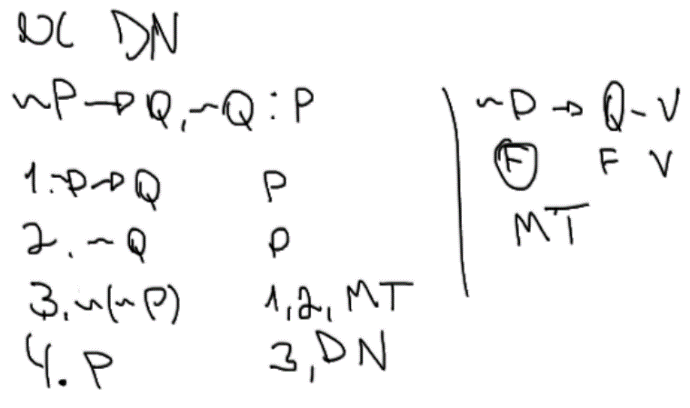 DC DN
~P→Q, ~Q : P
1. ~P→Q P
2. ~Q P
3. ~(~P) 1,2, MT
4. P 3, DN
~P → Q - V
F F V
MT